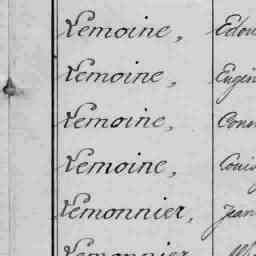 Lemoine, Edou
Lemoine, Eugén
Lemoine, Cons
Lemoine, Louis
Lemonnier, Jean
Lemonnier